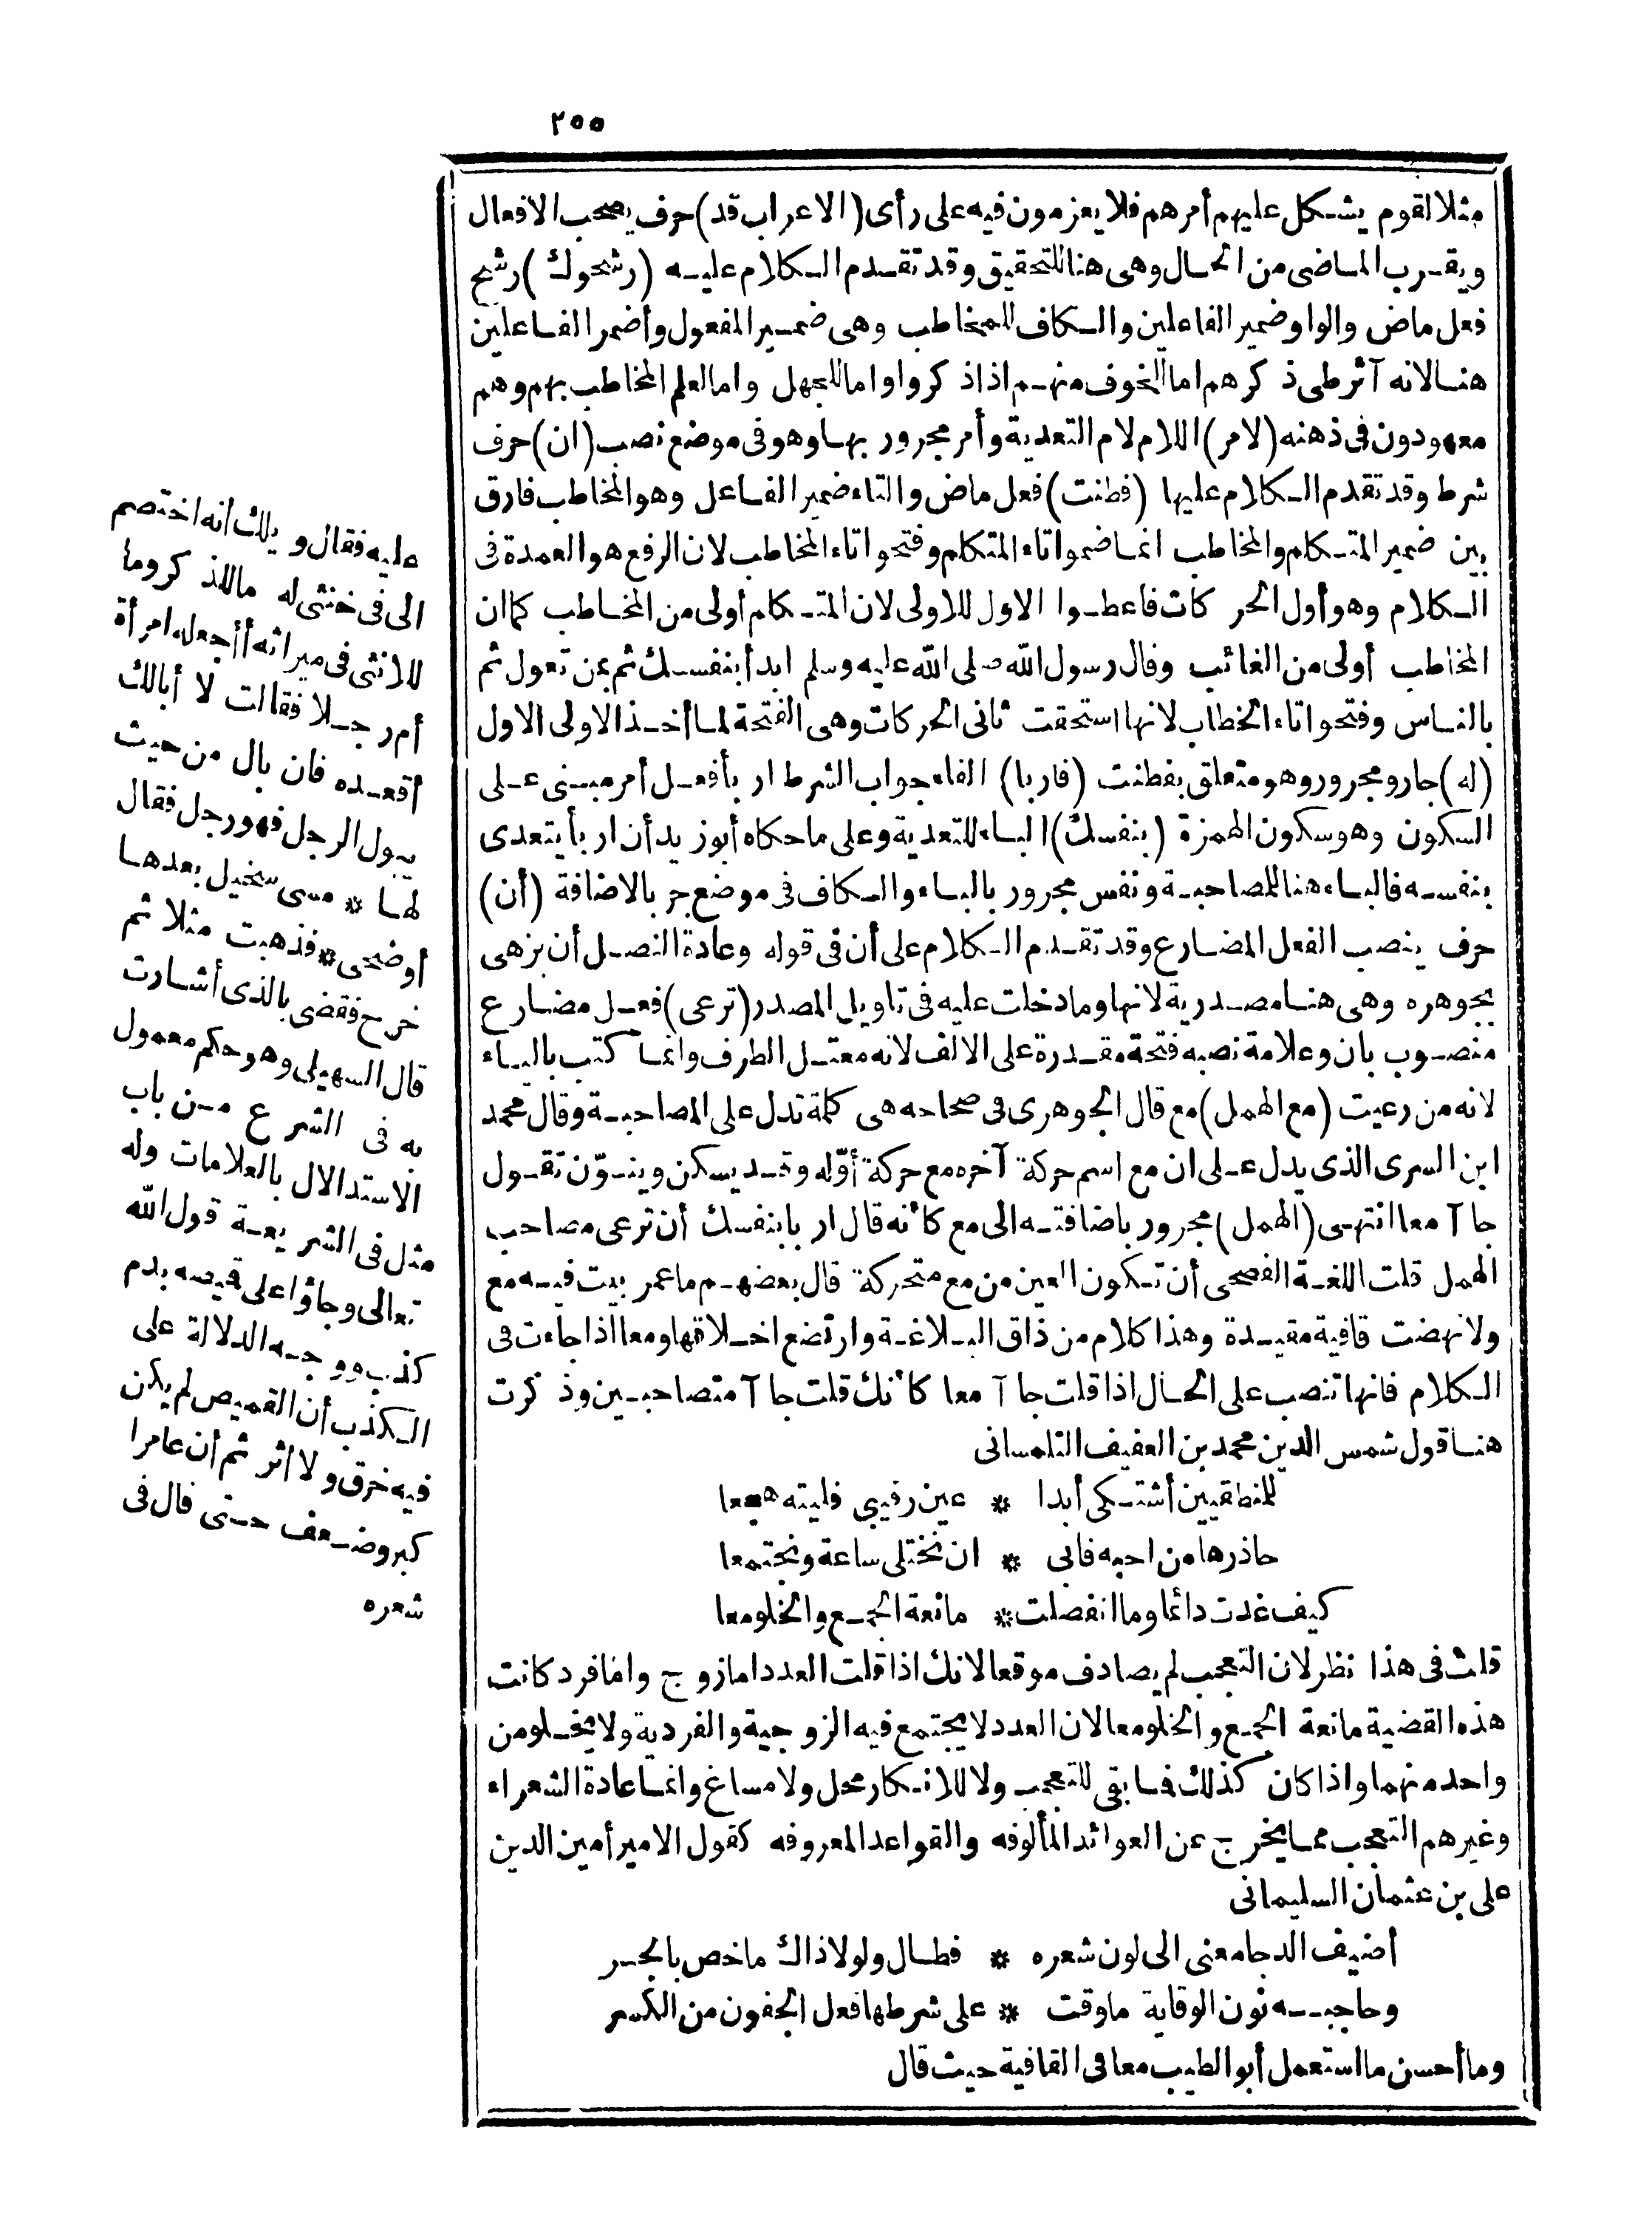 ٢٥٥
مثلا لقوم يشكل عليهم أمرهم فلا يعزمون فيه على رأى (الاعراب قد) حرف يصحب الافعال
ويقرب الماضى من الحال وهى هنا للتحقيق وقد تقدم الكلام عليه (رشحوك) رشح
فعل ماض والواو ضمير الفاعلين والكاف للمخاطب وهى ضمير المفعول وأضمر الفاعلين
هنا لانه آثر طى ذكرهم اما الخوف منهم اذا ذكروا واما للجهل واما لعلم المخاطب بهم وهم
معهودون فى ذهنه (لامر) اللام لام التعدية وأمر مجرور بها وهو فى موضع نصب (ان) حرف
شرط وقد تقدم الكلام عليها (فطنت) فعل ماض والتاء ضمير الفاعل وهو المخاطب فارق
بين ضمير المتكلم والمخاطب انما ضموا تاء المتكلم وفتحوا تاء المخاطب لان الرفع هو العمدة فى
الكلام وهو أول الحركات فاعطوا الاول للاولى لان المتكلم أولى من المخاطب كما ان
المخاطب أولى من الغائب وقال رسول الله صلى الله عليه وسلم ابدأ بنفسك ثم بمن تعول ثم
بالناس وفتحوا تاء الخطاب لانها استحقت ثانى الحركات وهى الفتحة لما أخذ الاولى الاول
(له) جار ومجرور وهو متعلق بفطنت (فاربا) الفاء جواب الشرط اربأ فعل أمر مبنى على
السكون وهو سكون الهمزة (بنفسك) الباء للتعدية وعلى ما حكاه أبوزيد أن اربأ يتعدى
بنفسه فالباء هنا للمصاحبة ونفس مجرور بالباء والكاف فى موضع جر بالاضافة (أن)
حرف ينصب الفعل المضارع وقد تقدم الكلام على أن فى قوله وعادة النصل أن يزهى
بجوهره وهى هنا مصدرية لانها وما دخلت عليه فى تاويل المصدر (ترعى) فعل مضارع
منصوب بان وعلامة نصبه فتحة مقدرة على الالف لانه معتل الطرف وانما كتب بالياء
لانه من رعيت (مع الهمل) مع قال الجوهرى فى صحاحه هى كلمة تدل على المصاحبة وقال محمد
ابن السرى الذى يدل على ان مع اسم حركة آخره مع حركة أوّله وقد يسكن وينوّن تقول
جاآ معا انتهى (الهمل) مجرور باضافته الى مع كأنه قال اربا بنفسك أن ترعى مصاحب
الهمل قلت اللغة الفصحى أن تكون العين من مع متحركة قال بعضهم ما عمر بيت فيه مع
ولا نهضت قافية مقيدة وهذا كلام من ذاق البلاغة وارتضع اخلافها ومعا اذا جاءت فى
الكلام فانها تنصب على الحال اذا قلت جاآ معا كأنك قلت جاآ متصاحبين وذكرت
هنا قول شمس الدين محمد بن العفيف التلمسانى
للمنطقيين أشتكى أبدا * عين رقيبى فليته هجعا
حاذرها من احبه فابى * ان نختلى ساعة ونجتمعا
كيف غدت دائما وما انفصلت * مانعة الجمع والخلو معا
قلت فى هذا نظر لان التعجب لم يصادف موقعا لانك اذا قلت العدد اما زوج واما فرد كانت
هذه القضية مانعة الجمع والخلو معا لان العدد لا يجتمع فيه الزوجية والفردية ولا يخلو من
واحد منهما واذا كان كذلك فما بقى للتعجب ولا للانكار محل ولا مساغ وانما عادة الشعراء
وغيرهم التعجب مما يخرج عن العوائد المألوفه والقواعد المعروفه كقول الامير أمين الدين
على بن عثمان السليمانى
أضيف الدجا معنى الى لون شعره * فطال ولولا ذاك ما خص بالجر
وحاجبه نون الوقاية ما وقت * على شرطها فعل الجفون من الكسر
وما أحسن ما استعمل أبو الطيب معا فى القافية حيث قال
عليه فقال ويلك انه اختصم
الى فى خنثى له ما للذكر وما
للانثى فى ميراثه أأجعله امرأة
أم رجلا فقالت لا أبالك
أقعده فان بال من حيث
يبول الرجل فهو رجل فقال
لها * مسى سخيل بعدها
أوضحى * فذهبت مثلا ثم
خرج فقضى بالذى أشارت
قال السهيلى وهو حكم معمول
به فى الشرع من باب
الاستدلال بالعلامات وله
مثل فى الشريعة قول الله
تعالى وجاؤا على قميصه بدم
كذب ووجه الدلالة على
الكذب أن القميص لم يكن
فيه خرق ولا اثر ثم أن عامرا
كبر وضعف حتى قال فى
شعره